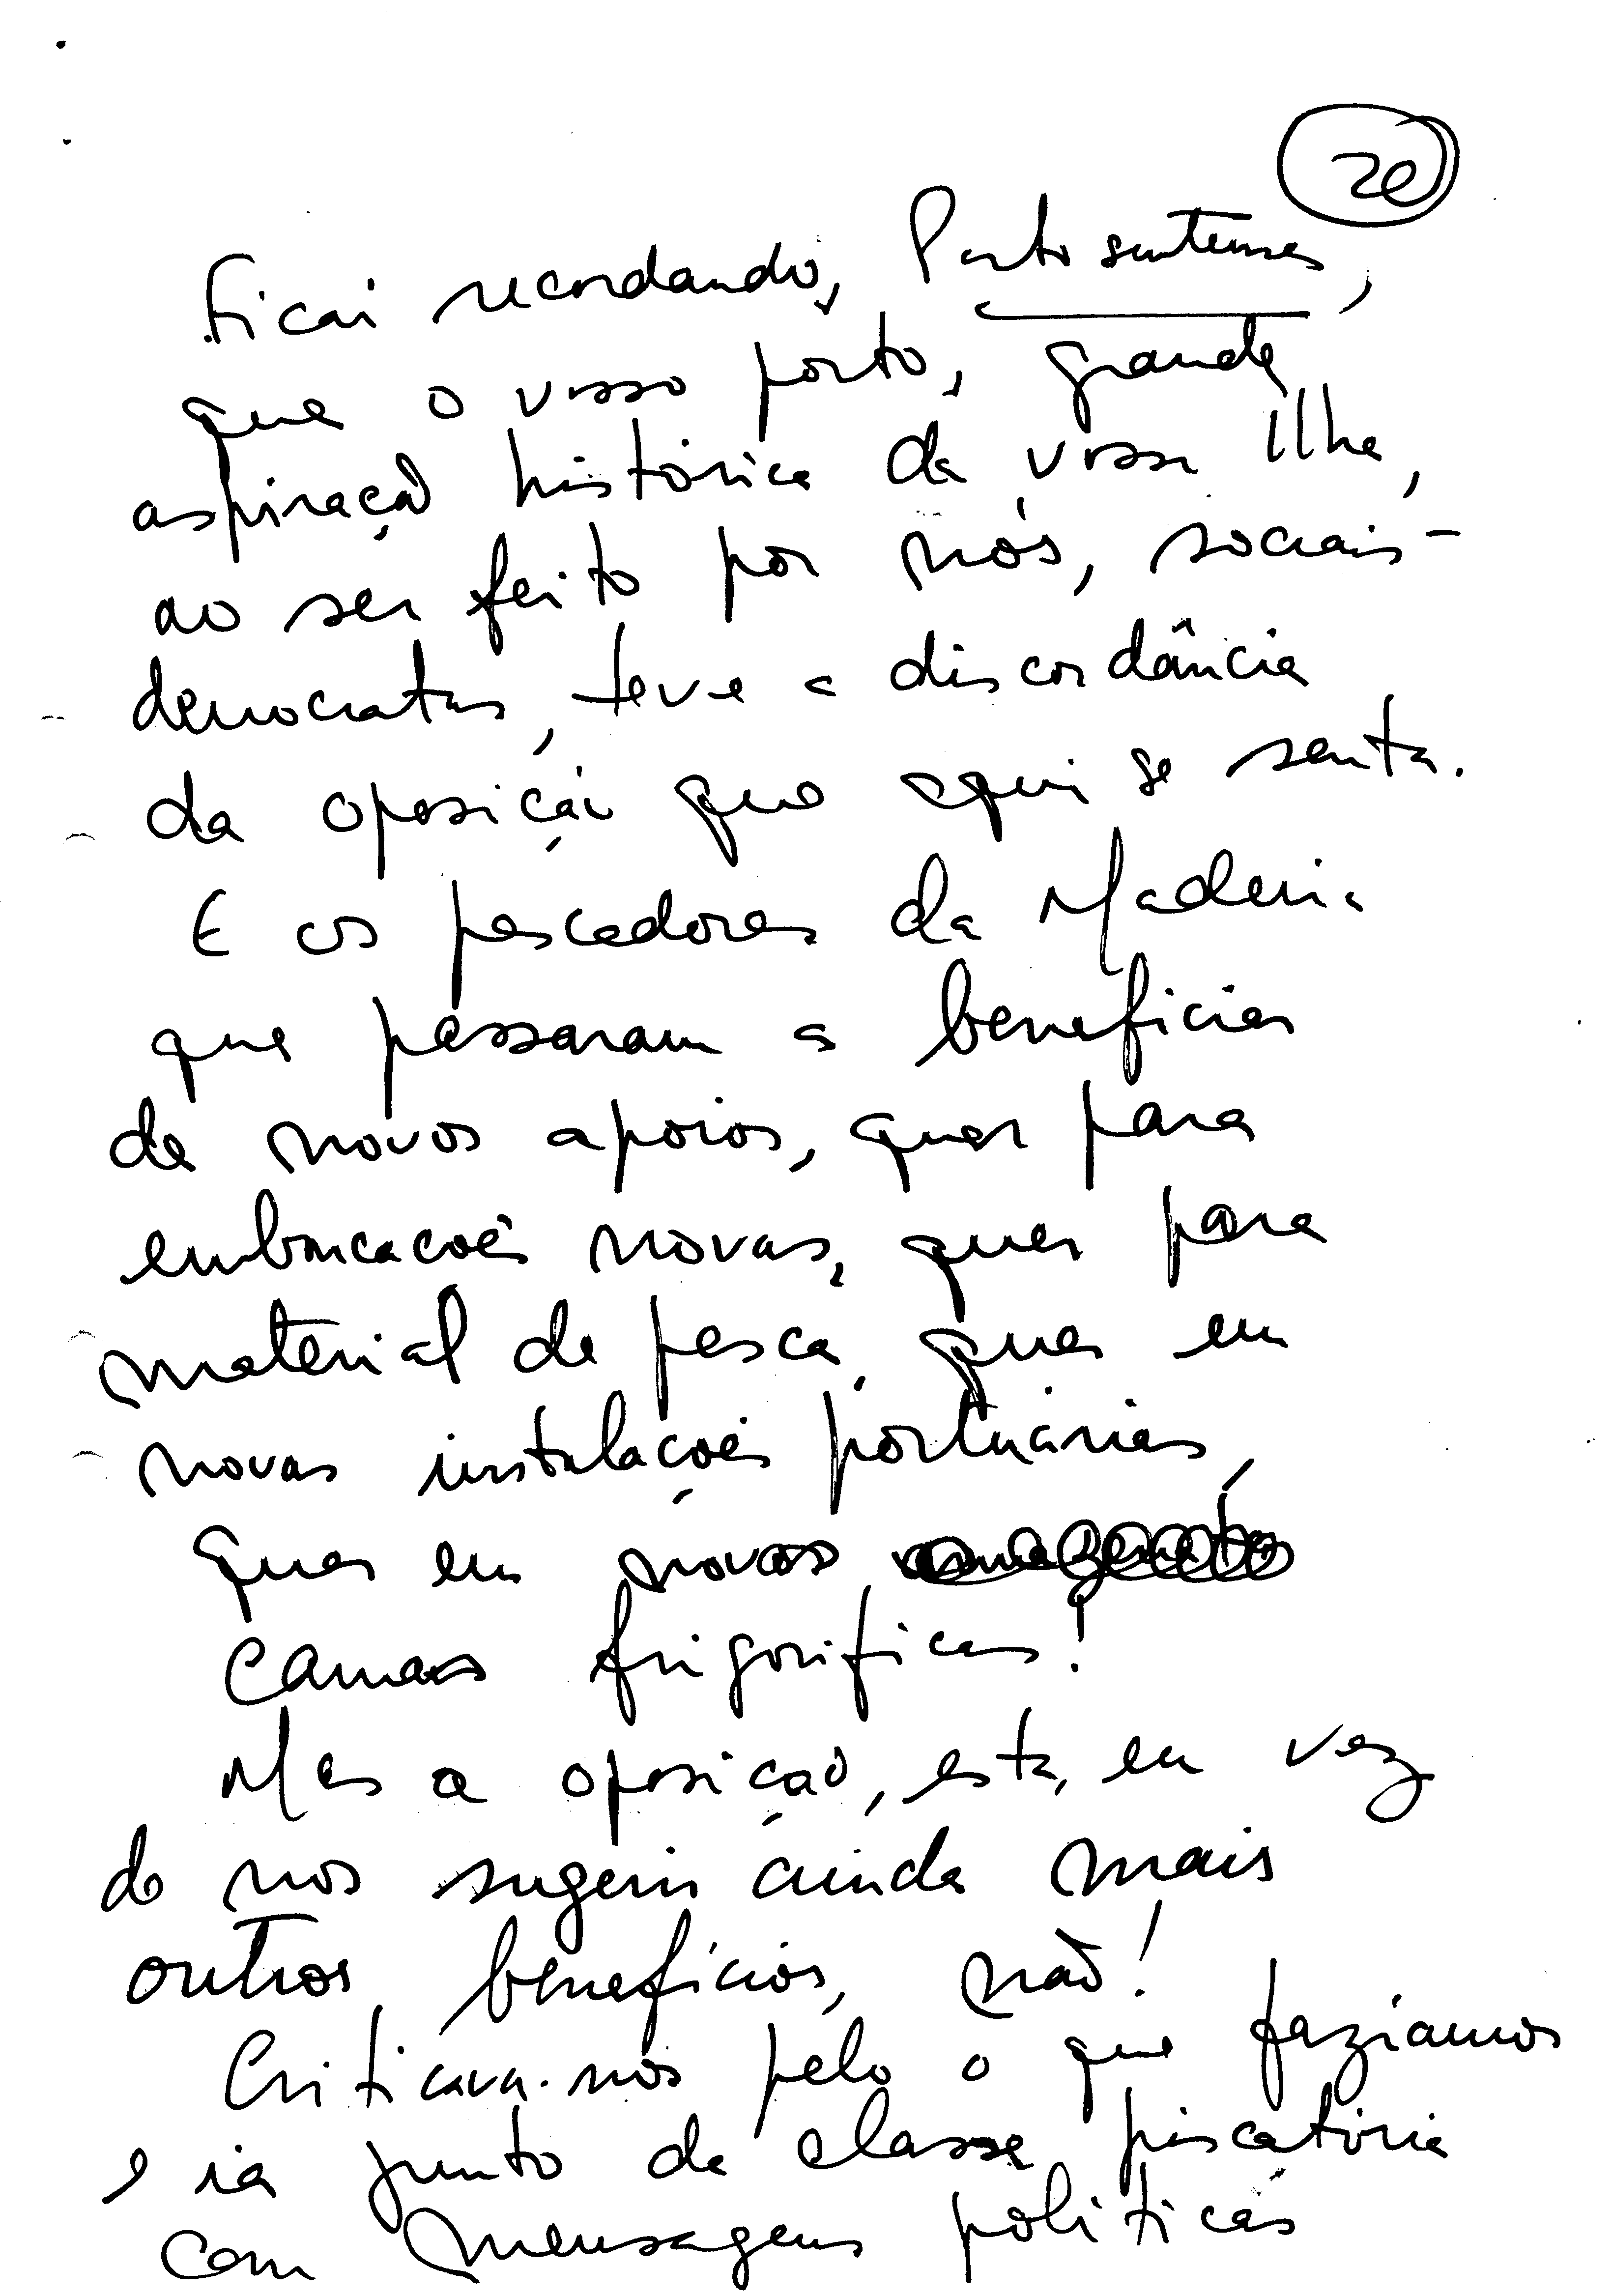 20
Ficai recordando, Porto santenses,
que o vosso porto, grande
aspiração histórica da vossa Ilha,
ao ser feito por nós, sociais-
democratas, teve a discordância
da oposição que aqui se senta.
E os pescadores da Madeira
que passaram a beneficiar
de novos apoios, quer para
embarcacoẽs novas, quer para
material de pesca, quer em
novas instalações portuárias,
quer em novas
camaras frigorificas!
Mas a oposição, esta, em vez
de nos sugerir ainda mais
outros benefícios, não!
Criticava-nos pelo o que faziamos
e ia junto da classe piscatória
com mensagens politicas